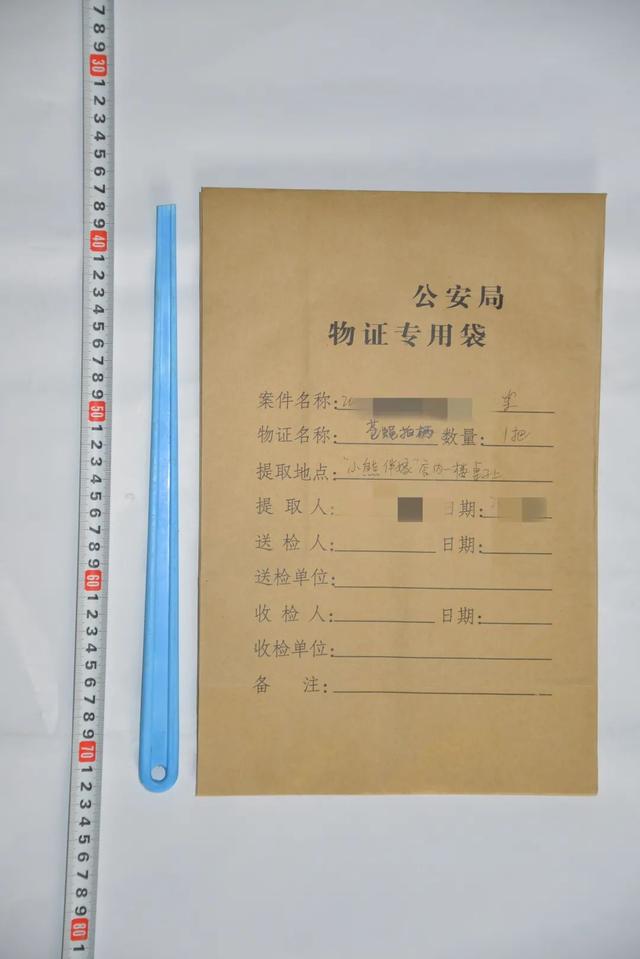 公安局
物证专用袋
案件名称:
物证名称:苍蝇拍柄 数量:1把
提取地点:"小熊伴嫁"店内一楼桌上
提取人: 日期:
送检人: 日期:
送检单位:
收检人: 日期:
收检单位:
备 注:
7 8 9 30 1 2 3 4 5 6 7 8 9 40 1 2 3 4 5 6 7 8 9 50 1 2 3 4 5 6 7 8 9 60 1 2 3 4 5 6 7 8 9 70 1 2 3 4 5 6 7 8 9 80 1